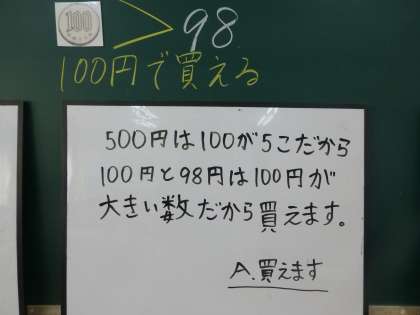 100 > 98
100円で買える
500円は100が5こだから
100円と98円は100円が
大きい数だから買えます。
A.買えます